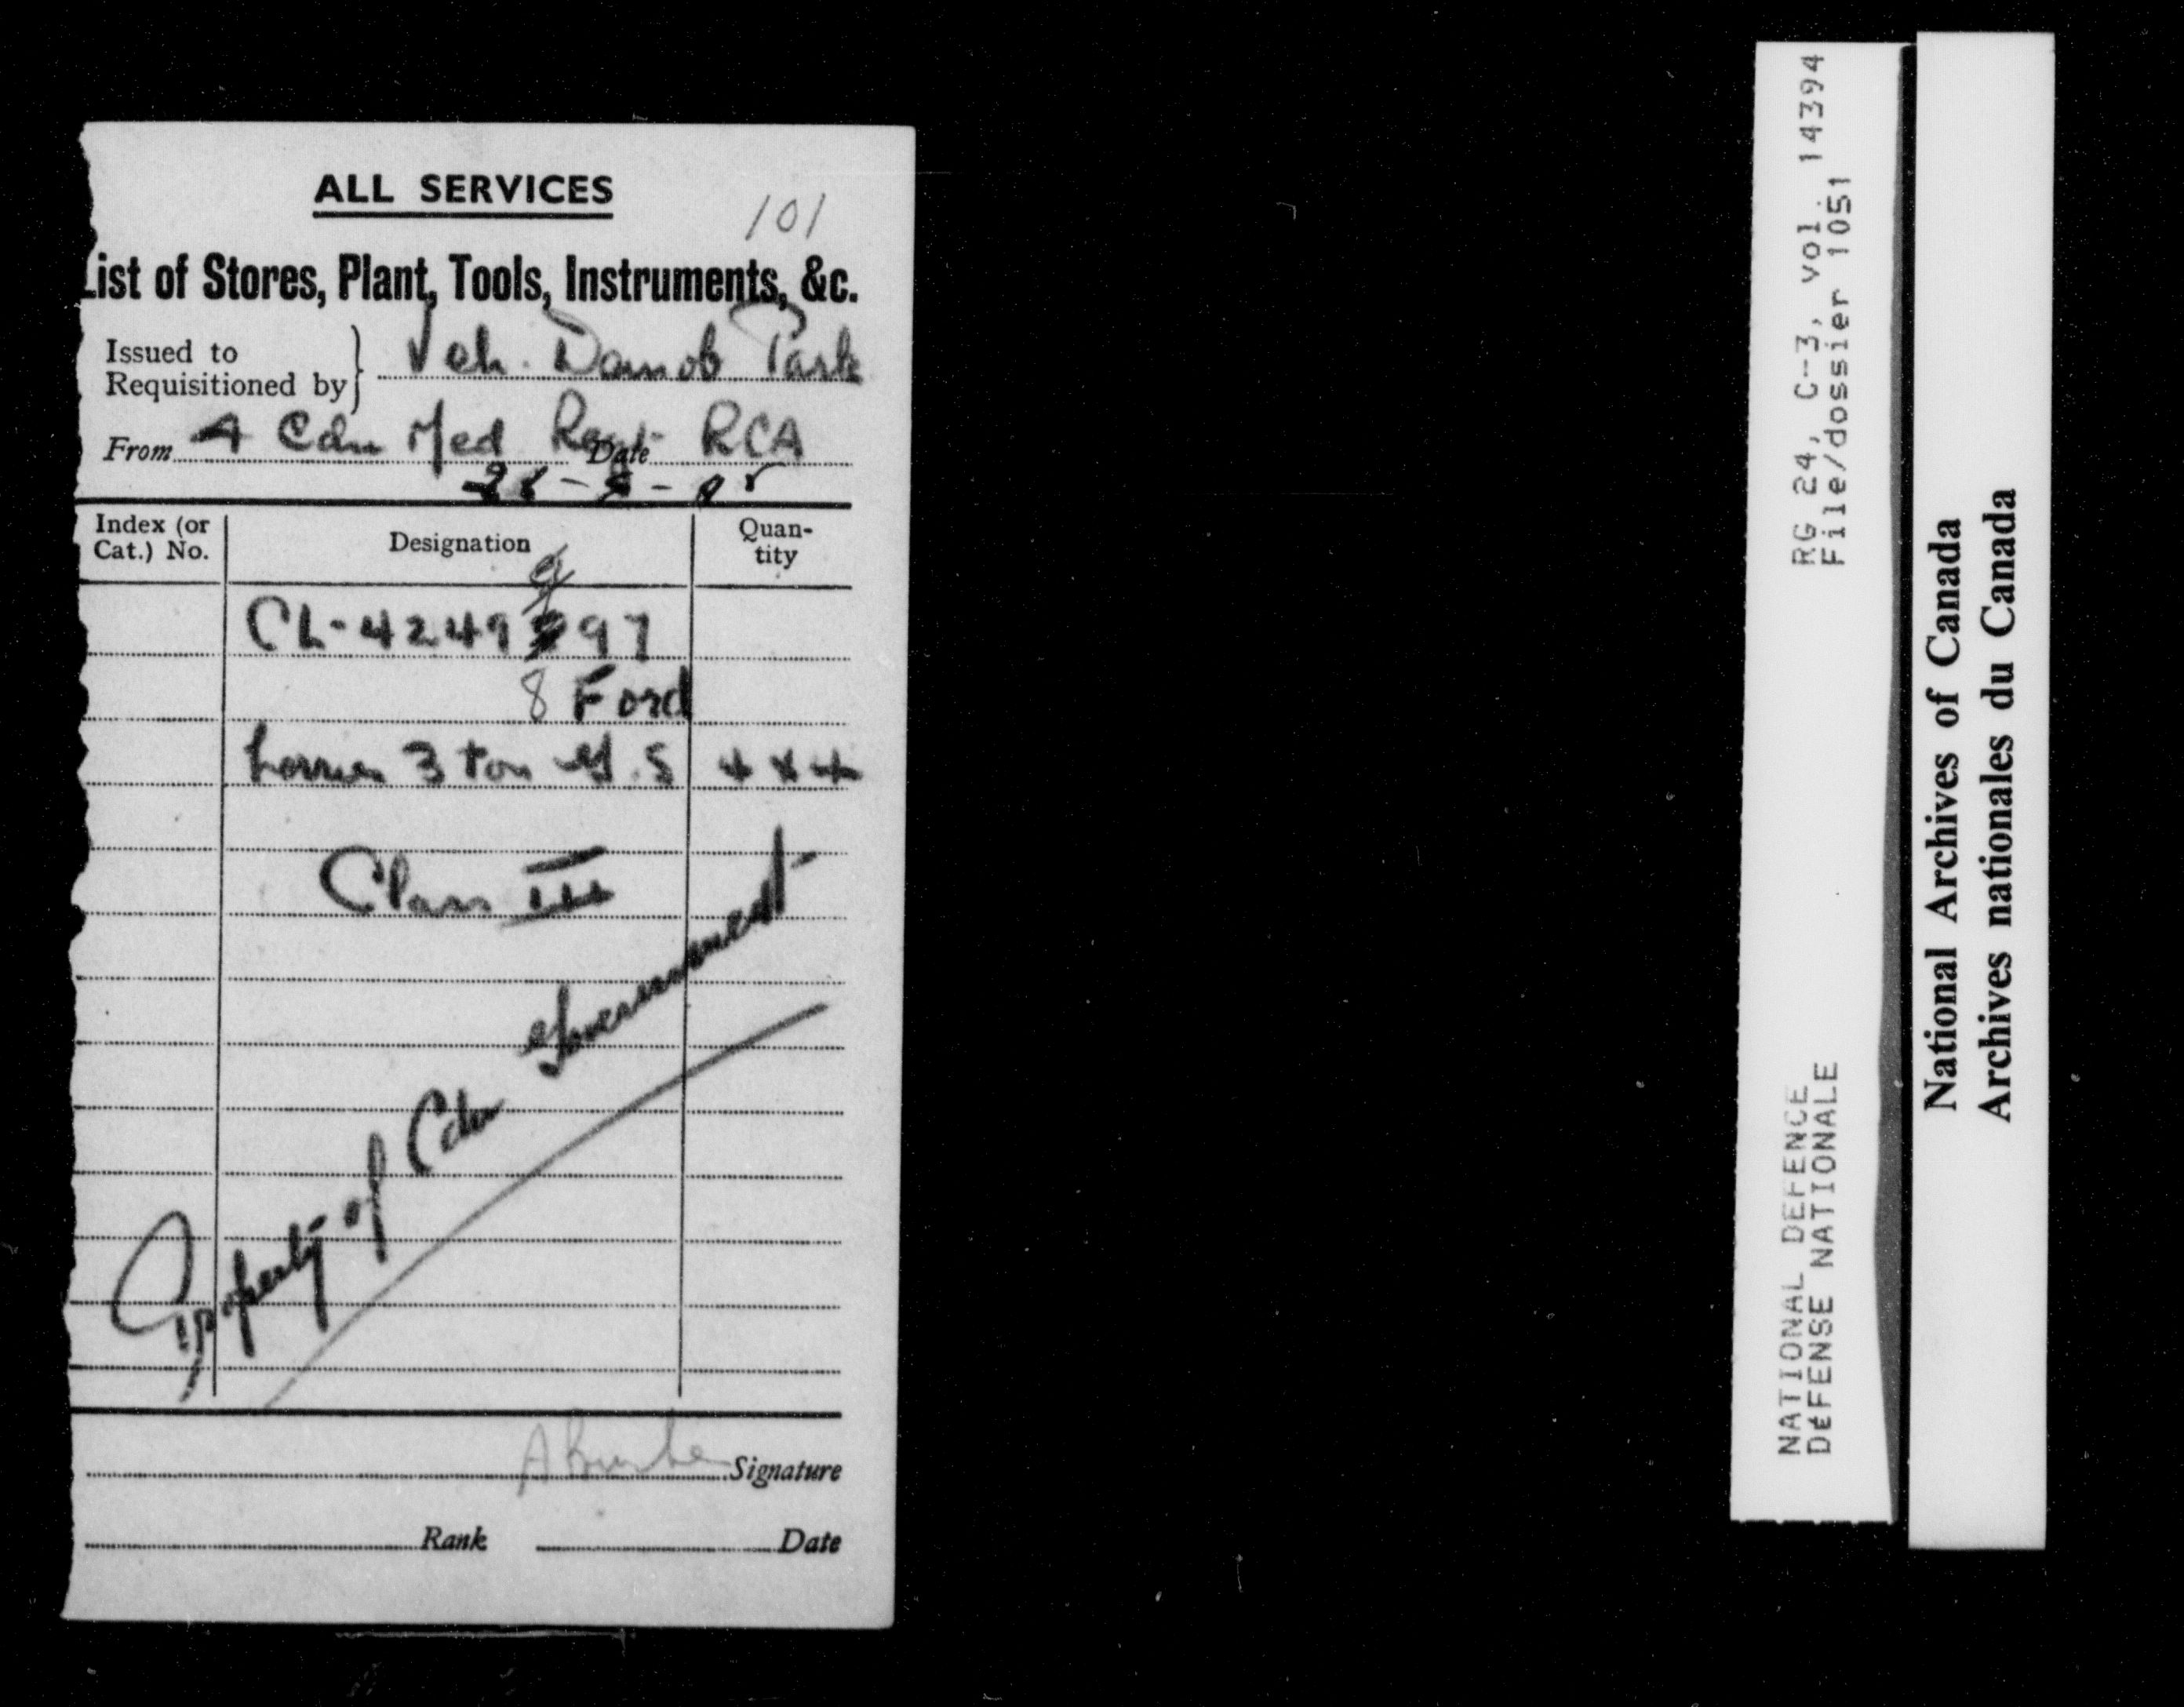 ALL SERVICES
101
List of Stores, Plant, Tools, Instruments, &c.
Issued to
Requisitioned by} Veh. Demob Park
From 4 Cdn Med Regt RCA Date
Index (or Cat.) No. Designation Quantity
9
CL-4249 97
8 Ford
Lorries 3 ton G.S 4x4
Class III
Property of Cdn Government
Signature
Rank Date
RG 24, C-3, vol. 14394
File/dossier 1051
NATIONAL DEFENCE
DÉFENSE NATIONALE
National Archives of Canada
Archives nationales du Canada